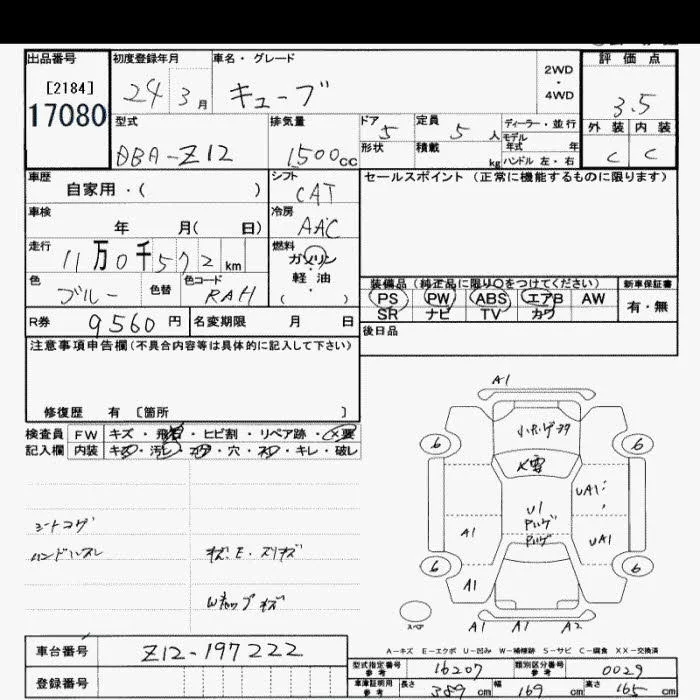 出品番号 初度登録年月 車名・グレード 評価点
[2184] 24 3月 キューブ 2WD・4WD 3.5
17080 型式 排気量 ドア 定員 ディーラー・並行 外装 内装
DBA-Z12 1500cc 5 5人 モデル年式 年 C C
形状 積載 kg ハンドル 左・右
車歴 自家用・( ) シフト CAT セールスポイント(正常に機能するものに限ります)
車検 年 月( 日) 冷房 AAC
走行 11万0千572km 燃料 ガソリン・軽油 ( )
色 ブルー 色替 色コード RAH
装備品(純正品に限り○をつけてください) 新車保証書
PS PW ABS エアB AW 有・無
SR ナビ TV カワ
R券 9560円 名変期限 月 日 後日品
注意事項申告欄(不具合内容等は具体的に記入して下さい)
修復歴 有 [箇所 ]
検査員 FW キズ・飛石・ヒビ割・リペア跡・X要
記入欄 内装 キズ・汚レ・コゲ・穴・スレ・キレ・破レ
シートコゲ
ハンドルスレ
A1
6 6
X要
UA1
U1
A1 UA1
6 6
A1
スペア A1 A1 A2
A-キズ E-エクボ U-凹み W-補修跡 S-サビ C-腐食 XX-交換済
車台番号 Z12-197222
登録番号
型式指定番号 参考 16207 類別区分番号 参考 0029
車庫証明用 参考 長さ 389cm 幅 169cm 高さ 165cm